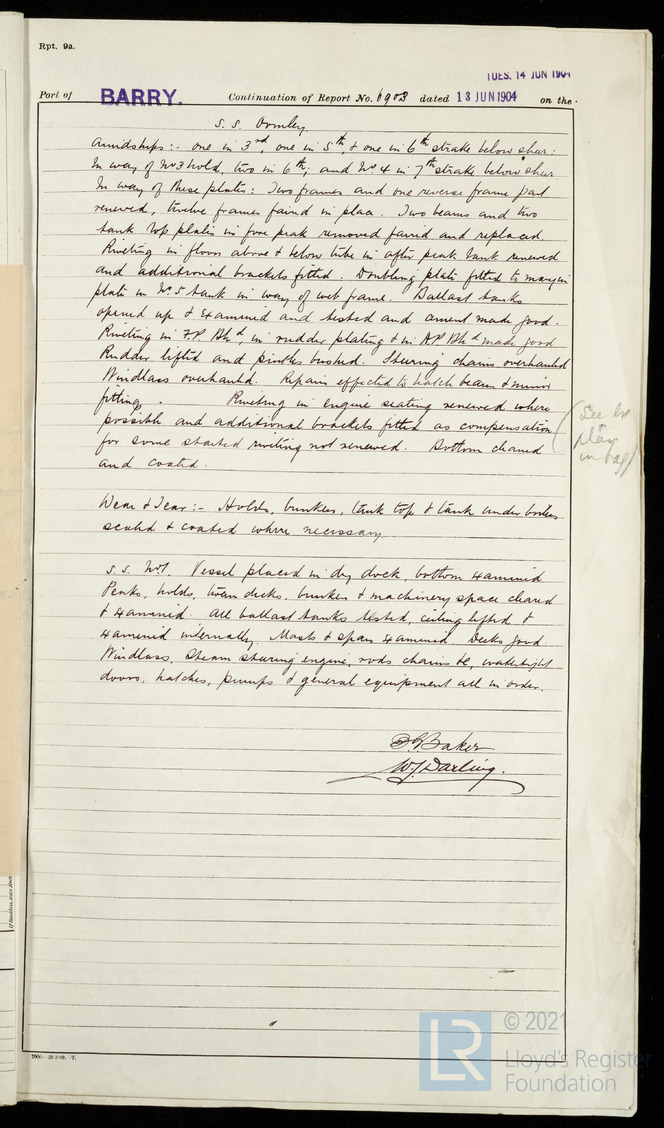 Rpt. 9a.
TUES. 14 JUN 1904
Port of BARRY. Continuation of Report No. 6903 dated 13 JUN 1904 on the
S.S. Ormley.
Amidships:- one in 3rd, one in 5th, & one in 6th strake below sheer:
In way of No 3 hold, two in 6th; and No 4 in 7th strake below sheer.
In way of these plates: Two frames and one reverse frame part
renewed, twelve frames faired in place. Two beams and two
tank top plates in fore peak removed faired and replaced.
Riveting in floors above & below tube in after peak tank renewed
and additional brackets fitted. Doubling plate fitted to margin
plate in No 5 tank in way of web frame. Ballast tanks
opened up & examined and tested and cement made good.
Riveting in F.P. Bhd, in rudder plating & in A.P. Bhd made good
Rudder lifted and pintles bushed. Steering chains overhauled
Windlass overhauled. Repairs effected to hatch beam & minor
fittings. Riveting in engine seating renewed where
possible and additional brackets fitted as compensation
for some started riveting not renewed. Bottom cleaned
and coated.
See
plan
in bag
Wear & Tear:- Holds, bunkers, tank top & tank under boilers
scaled & coated where necessary.
S.S. No 1. Vessel placed in dry dock, bottom examined
Peaks, holds, tween decks, bunkers & machinery space cleared
& examined. All ballast tanks tested, ceiling lifted &
examined internally. Masts & spars examined. Decks good.
Windlass, steam steering engine, rods chains &c, watertight
doors, hatches, pumps & general equipment all in order.
Baker
W. J. Darling.
© 2021
LR
Lloyd's Register
Foundation